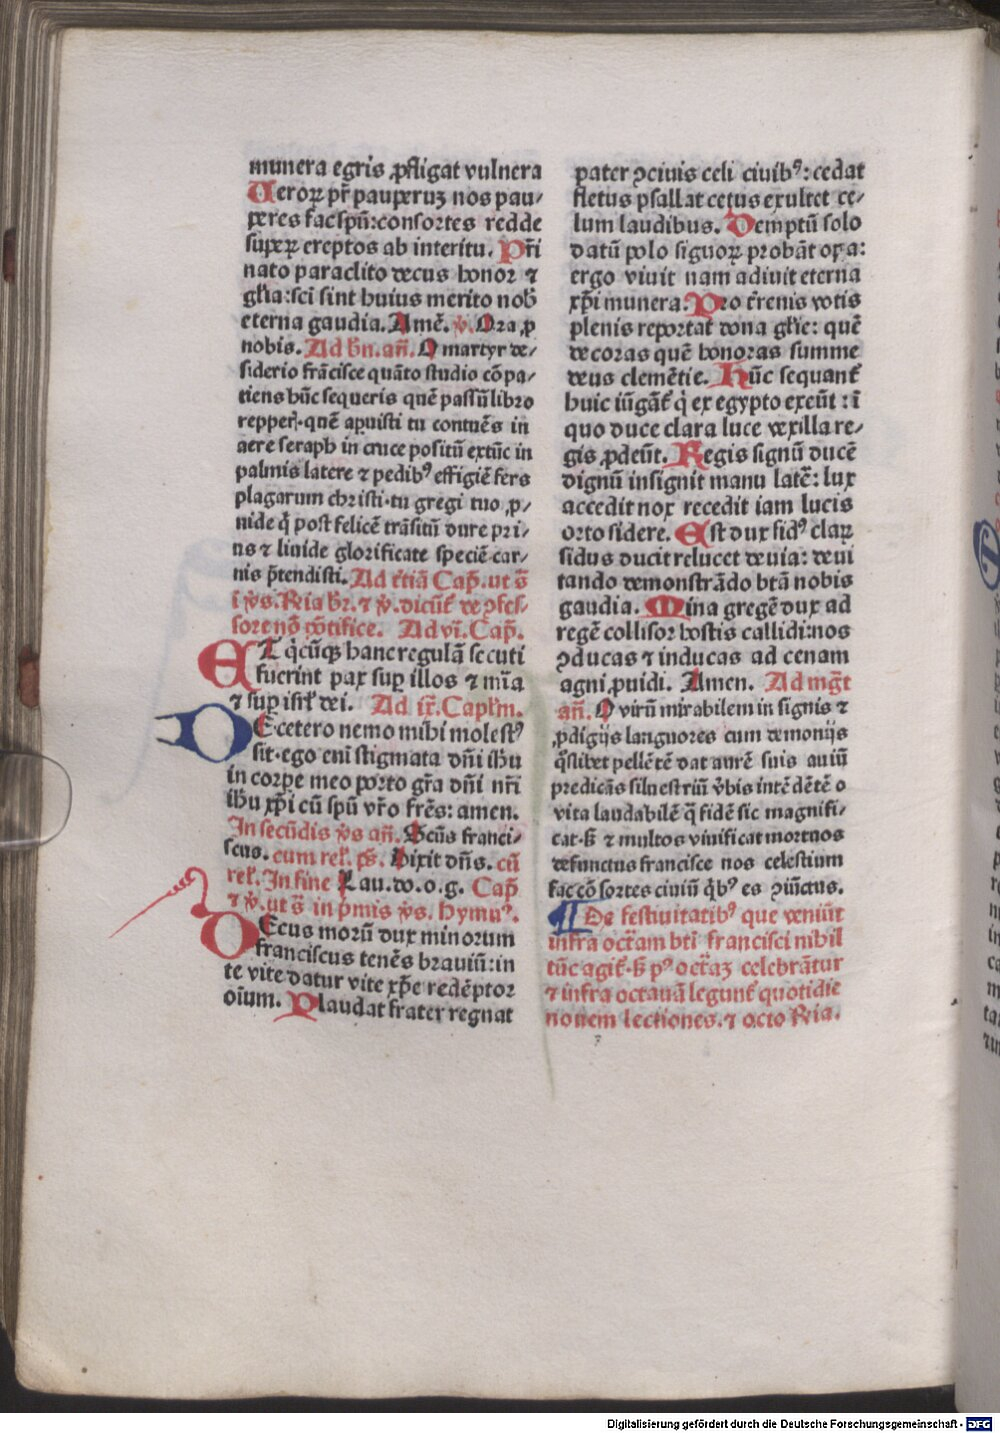 munera egris ꝓfligat vulnera
Ueroꝝ pr̄ pauperuʒ nos pau/
peres fac spū:consortes redde
superꝝ ereptos ab interitu. Pr̄i
nato paraclito decus honor ⁊
gl̄ia:sci sint huius merito nob̄
eterna gaudia. Amē. ꝟ. Ora ꝓ
nobis. Ad bn̄. an̄. O martyr de/
siderio frācisce quāto studio cōpa/
tiens hūc sequeris quē passū libro
repperis·quē apuisti tu contuēs in
aere seraph in cruce positū extūc in
palmis latere ⁊ pedibꝰ effigiē fers
plagarum christi·tu gregi tuo ꝓ/
uide q̄ post felicē trāsitū dure pri/
us ⁊ liuide glorificate speciē car/
nis p̄tendisti. Ad t̄tiā Cap̄. ut s̄
ī ꝟs. R̄ia br̄. ⁊ ꝟ. dicūt̄ de ꝯfes/
sore nō pōtifice. Ad vi. Cap̄.
ET q̄cūqꝫ hanc regulā secuti
fuerint pax sup illos ⁊ mīa
⁊ sup isrl̄ dei. Ad ix. Capl̄m.
DE·cetero nemo mihi molestꝰ
sit·ego eni stigmata dn̄i ih̄u
in corpe meo porto gr̄a dn̄i nr̄i
ih̄u xp̄i cū spū vr̄o fr̄es: amen.
In secūdis ꝟs an̄. Scūs franci/
scus. cum rel̄. ps̄. Dixit dn̄s. cū
rel̄. In fine Lau. do. o. g. Cap̄
⁊ ꝟ. ut s̄ in p̄mis ꝟs. Hymnꝰ.
DEcus morū dux minorum
franciscus tenēs brauiū: in
te vite datur vite xp̄e redēptor
oīum. Plaudat frater regnat
pater ꝯciuis celi ciuibꝰ: cedat
fletus psallat cetus exultet ce/
lum laudibus. Demptū solo
datū polo signoꝝ probāt opa:
ergo viuit nam adiuit eterna
xp̄i munera. Pro t̄renis votis
plenis reportat dona gl̄ie: quē
decoras quē honoras summe
deus clemētie. Hūc sequant̄
huic iūgāt̄ q̄ ex egypto exeūt: ī
quo duce clara luce vexilla re/
gis ꝓdeūt. Regis signū ducē
dignū insignit manu latē: lux
accedit nox recedit iam lucis
orto sidere. Est dux fidꝰ claꝝ
sidus ducit relucet deuia: deui
tando demonstrādo btā nobis
gaudia. Mina gregē dux ad
regē collisor hostis callidi:nos
ꝯducas ⁊ inducas ad cenam
agni ꝓuidi. Amen. Ad mḡt
an̄. O virū mirabilem in signis ⁊
ꝓdigijs languores cum demonijs
q̄slibet pellētē dat aurē suis auiū
predicās siluestriū v̄bis intēdētē o
vita laudabilē q̄ fidē sic magnifi/
cat·s̄ ⁊ multos viuificat mortuos
defunctus francisce nos celestium
fac cōsortes ciuiū q̄bꝰ es ꝯiūctus.
¶ De festiuitatibꝰ que veniūt
infra oct̄am bti francisci nihil
tūc agit̄·s̄ pꝰ oct̄aʒ celebrātur
⁊ infra octauā legunt̄ quotidie
nouem lectiones. ⁊ octo R̄ia.
Digitalisierung gefördert durch die Deutsche Forschungsgemeinschaft - DFG